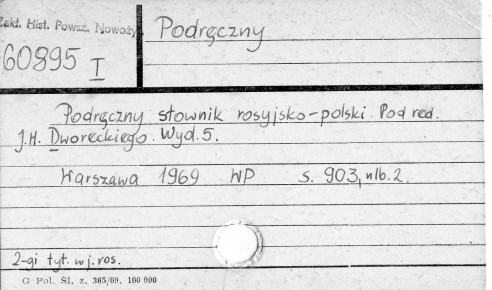 Zakł. Hist. Powsz. Nowoży
60895 I
Podręczny
Podręczny słownik rosyjsko-polski. Pod red.
J.H. Dworeckiego. Wyd. 5.
Warszawa 1969 WP s. 903, nlb. 2.
2-gi tyt. w j. ros.
G Pol. Śl. z. 365/69. 100 000